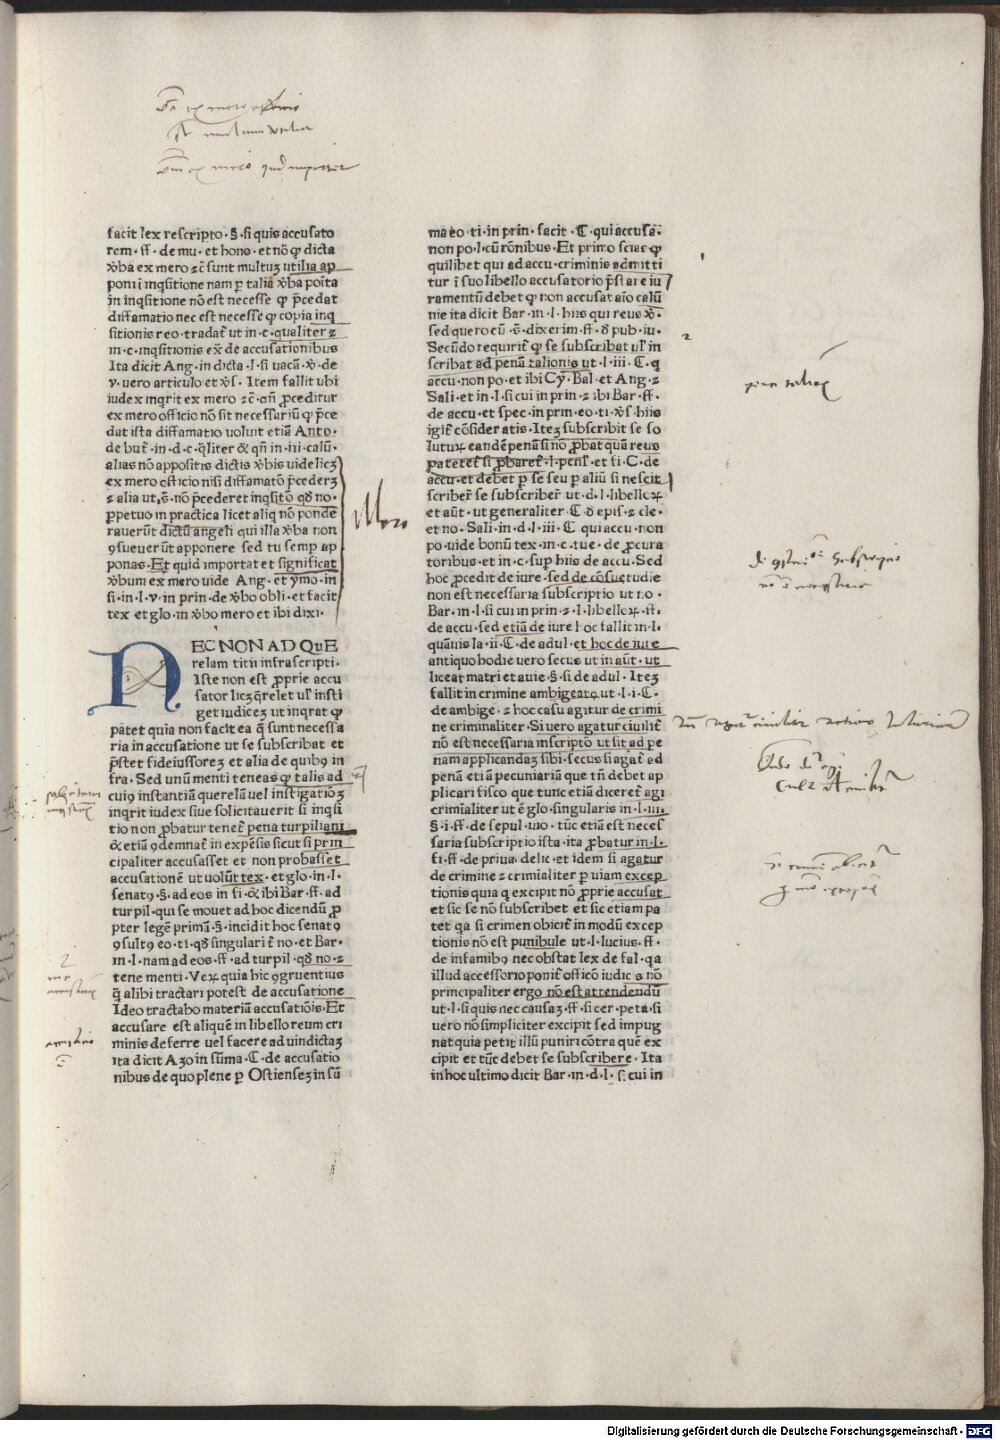 facit lex rescripto·§·si quis accusato
rem·ff·de mu·et hono·et nō ꝙ dicta
v̄ba ex mero ⁊c̄ sunt multuʒ utilia ap
poni ī inq̄sitione nam ꝑ talia v̄ba poīta
in inq̄sitione nō est necesse ꝙ p̄cedat
diffamatio nec est necesse ꝙ copia inq̄
sitionis reo tradat᷑ ut in·c·qualiter ⁊
in·c·inq̄sitionis ex̄ de accusationibus
Ita dicit Ang·in dicta·l·si vacā·v̄·de
v·uero articulo et v̄s·Item fallit ubi
iudex inq̄rit ex mero ⁊c̄ qn̄ ꝓceditur
ex mero officio nō sit necessariū ꝙ p̄ce
dat ista diffamatio uoluit etiā Anto·
de but᷑ in·d·c·q̄liter & qn̄ in·iii·calū·
alias nō appositis dictis v̄bis uidelicʒ
ex mero officio nisi diffamatō p̄cederʒ
⁊ alia ut·s̄·nō p̄cederet inq̄sitō qd̄ no·
ꝑpetuo in practica licet aliq̄ nō ponde
rauerūt dictū angeli qui illa v̄ba non
ꝯsueuerūt apponere sed tu semp ap
ponas·Et quid importat et significat
v̄bum ex mero uide Ang·et ymo·in
si·in·l·v·in prin·de v̄bo obli·et facit
tex et glo·in v̄bo mero et ibi dixi·
NEC NON AD QuE
relam titii infrascripti·
Iste non est ꝓprie accu
sator licʒ q̄relet ul̓ insti
get iudiceʒ ut inq̄rat ꝙ
patet quia non facit ea q̄ sunt necessa
ria in accusatione ut se subscribat et
p̄stet fideiussoreʒ et alia de quibꝯ in
fra·Sed unū menti teneas ꝙ talis ad
cuiꝯ instantiā querelā uel instigatiōʒ
inq̄rit iudex siue solicitauerit si inq̄si
tio non ꝓbatur tenet᷑ pena turpiliani
& etiā ꝯdemnat᷑ in expēsis sicut si prin
cipaliter accusasset et non probasset
accusationē ut uolūt tex·et glo·in·l·
senatꝯ·§·ad eos in fi·& ibi Bar·ff·ad
turpil·qui se mouet ad hoc dicendū ꝓ
pter legē primā·§·incidit hoc senatꝯ
ꝯsultꝯ eo·ti·qd̄ singularit᷑ no·et Bar·
in·l·nam ad eos·ff·ad turpil·qd̄ no·⁊
tene menti·Veꝝ quia hic ꝯgruentius
q̄ alibi tractari potest de accusatione
Ideo tractabo materiā accusatiōis·Et
accusare est aliquē in libello reum cri
minis deferre uel facere ad uindictaʒ
ita dicit Aʒo in sūma·C·de accusatio
nibus de quo plene ꝑ Ostienseʒ in sū
ma eo·ti·in prin·facit·C·qui accusā·
non po·l·cū rōnibus·Et primo scias ꝙ
quilibet qui ad accu·criminis admitti
tur ī suo libello accusatorio p̄stare iu
ramentū debet ꝙ non accusat aīo calū
nie ita dicit Bar·in·l·hiis qui reus v̄·
sed quero cū·s̄·dixerim·ff·d̄ pub·iu·
Secūdo requirit᷑ ꝙ se subscribat ul̓ in
scribat ad penā talionis ut·l·iii·C·q
accu·non po·et ibi Cy·Bal·et Ang·⁊
Sali·et in·l·si cui in prin·⁊ ibi Bar·ff·
de accu·et spec·in prin·eo·ti·v̄s·hiis
igit᷑ cōsideratis·Iteʒ subscribit se so
lutuꝝ eandē penā si nō ꝓbat quā reus
pateret᷑ si ꝓbaret᷑·l·penl̓·et fi·C·de
accu·et debet ꝑ se seu ꝑ aliū si nescit
scriber̄ se subscriber̄ ut·d·l·libelloꝝ
et aūt·ut generaliter·C·d̄ epis·⁊ cle·
et no·Sali·in·d·l·iii·C·qui accu·non
po·uide bonū tex·in·c·tue·de ꝓcura
toribus·et in·c·sup hiis de accu·Sed
hoc ꝓcedit de iure·sed de cōsuetudie
non est necessaria subscriptio ut no·
Bar·in·l·si cui in prin·⁊·l·libelloꝝ·ff·
de accu·sed etiā de iure hoc fallit in·l·
quāuis la·ii·C·de adul·et hoc de iure
antiquo hodie uero secus ut in aūt·ut
liceat matri et auie·§·si de adul·Iteʒ
fallit in crimine ambigeatꝯ ut·l·i·C·
de ambige·⁊ hoc casu agitur de crimi
ne criminaliter·Si uero agatur ciuilit᷑
nō est necessaria inscriptō ut sit ad pe
nam applicandaʒ sibi·secus si agat᷑ ad
penā etiā pecuniariā que tn̄ debet ap
plicari fisco que tunc etiā diceret᷑ agi
crimialiter ut ē glo·singularis in·l·iii·
§·i·ff·de sepul·uio·tūc etiā est neces
saria subscriptio ista·ita ꝓbatur in·l·
fi·ff·de priua·delic·et idem si agatur
de crimine ⁊ crimialiter ꝑ uiam excep
tionis quia q̄ excipit nō ꝓprie accusat
et sic se nō subscribet et sic etiam pa
tet qa si crimen obicit᷑ in modū excep
tionis nō est punibile ut·l·lucius·ff·
de infamibꝯ nec obstat lex de fal·qa
illud accessorio ponit᷑ officō iudicis nō
principaliter ergo nō est attendendū
ut·l·si quis nec causaʒ·ff·si cer·peta·si
uero nō simpliciter excipit sed impug
nat quia petit illū puniri cōtra quē ex
cipit et tūc debet se subscribere·Ita
in hoc ultimo dicit Bar·in·d·l·si cui in
Digitalisierung gefördert durch die Deutsche Forschungsgemeinschaft · DFG